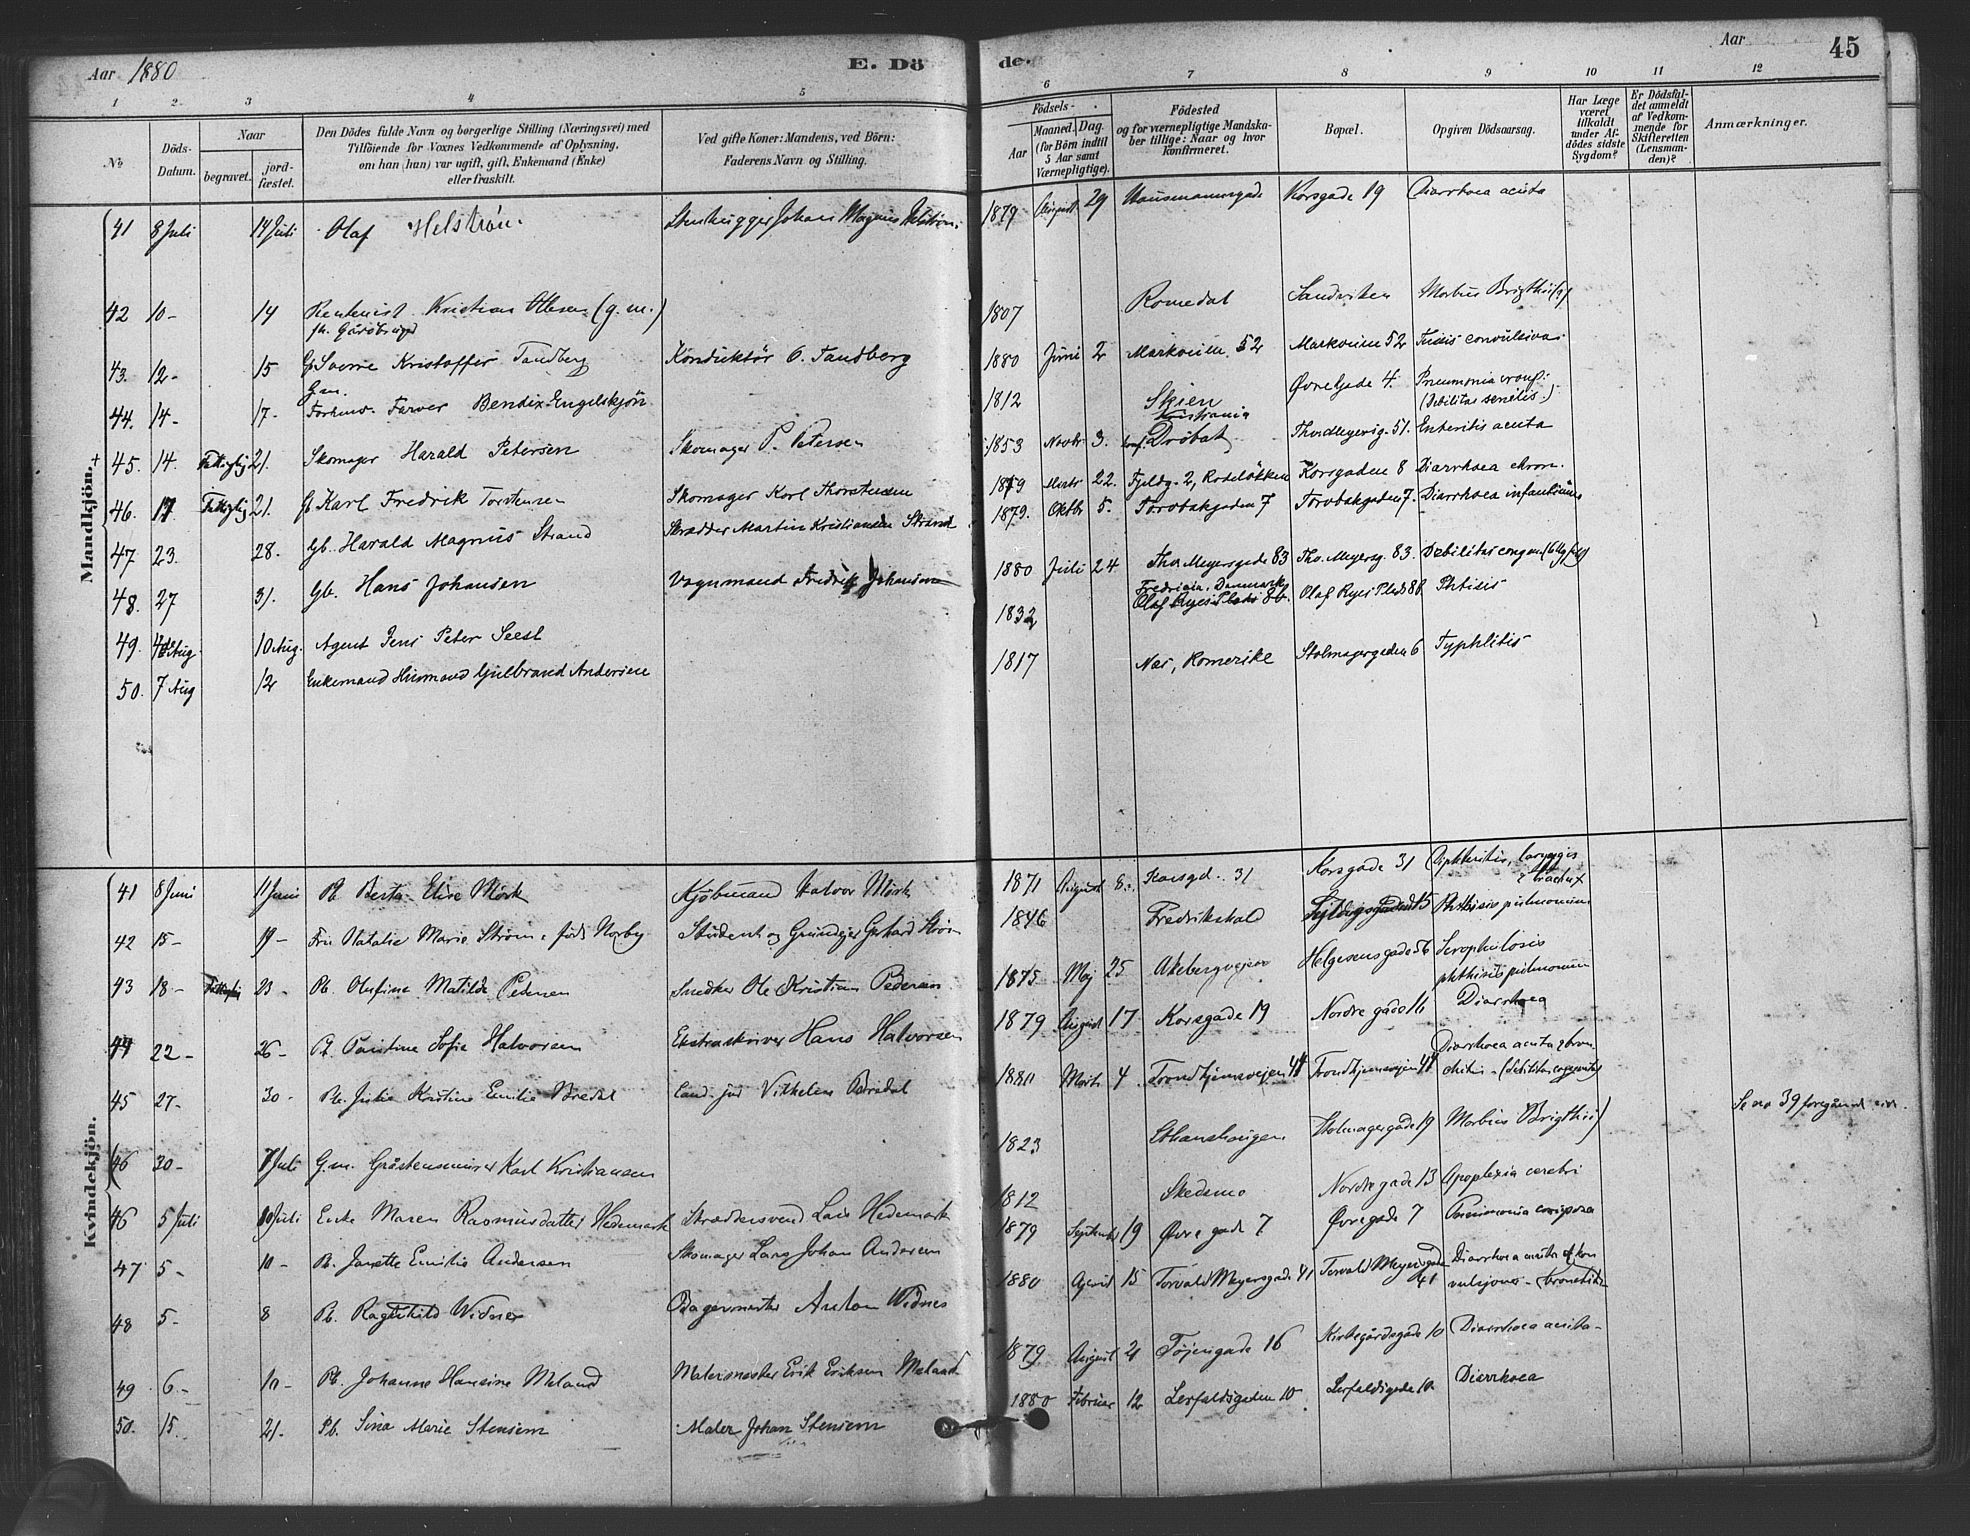 Aar 1880
E. Dö
de.
Aar
45
1 2 3 4 5 6 7 8 9 10 11 12
No
Döds-Datum.
Naar
begravet.
jord-fæstet.
Den Dödes fulde Navn og borgerlige Stilling (Næringsvei) med
Tilföiende for Voxnes Vedkommende af Oplysning,
om han (hun) var ugift, gift, Enkemand (Enke)
eller fraskilt.
Ved gifte Koner: Mandens, ved Börn:
Faderens Navn og Stilling.
Födsels-
Aar
Maaned. Dag.
(for Börn indtil
5 Aar samt
Værnepligtige).
Födested
og for værnepligtige Mandska-
ber tillige: Naar og hvor
konfirmeret.
Bopæl.
Opgiven Dödsaarsag.
Har Læge
været
tilkaldt
under Af-
dödes sidste
Sygdom?
Er Dödsfal-
det anmeldt
af Vedkom-
mende for
Skifteretten
(Lensman-
den)?
Anmærkninger.
Mandkjön.
41 8 Juli 14 Juli Olaf Helström Stenhugger Johan Magnus Helström 1879 August 29 Hausmannsgade Korsgade 19 Diarrhoea acuta
42 10- 14 Kristian Olsen (g.m.) 1807 Romedal Sandviken Morbus Brigthii (?)
43. 12- 15 Gb Sverre Kristoffer Tandberg Konduktör O. Tandberg 1880 Juni 2 Markveien 52 Markveien 52 Tussis convulsiva
44. 14- 17- Gm. Farver Bendix Engelskjön 1812 Skien Øvre Gade 4. Pneumonia croup.
(Debilitas senilis.)
45. 14. Fattiglig 21. Skomager Harald Petersen Skomager P. Petersen 1853 Novbr 3. Kristiania
Dröbak Thv. Meyersg. 51. Enteritis acuta
46. 17 Fattiglig 21. Gb Karl Fredrik Torstensen Skomager Karl Thorstensen 1879 22. Fjeldg. 2, Rodelökken Korsgaden 8 Diarrhoea chron.
47. 23. 28. Gb. Harald Magnus Strand Skrædder Martin Kristiansen Strand 1879. Oktbr 5. Torvbakgaden 7 Torvbakgaden 7. Diarrhoea infantium
48. 27 31. Gb. Hans Johansen Vognmand Fredrik Johansen 1880 Juli 24 Tho. Meyersgade 83 Tho. Meyersg. 83. Debilitas congen.
49. 4 Aug. 10 Aug. Agent Jens Peter Seest 1832 Fredricia, Danmark
Olaf Ryes Plads 8b. Olaf Ryes Plads 8b Phtisis
50. 7 Aug 12 Enkemand Husmand Gulbrand Andersen 1817 Nes, Romerike Stolmagergaden 6 Typhlitis
Kvindekjön.
41 8 Juni 11 Juni Pb Berta Elise Mörk Kjöbmand Halvor Mörk 1871 August 8. Korsgd. 31 Korsgade 31 Diphteritis, laryngis
& trachea
42 15- 19- Fru Natalie Marie Ström, föd Norby Student og Grundejer Gerhard Ström 1846 Fredrikshald Phthisis pulmonum
43 18- Fattiglig 23- Pb. Olufine Matilde Pedersen Snedker Ole Kristian Pedersen 1875 Maj 25 Akebergvejen Helgesensgade 56 Scrophulosis
phthisis pulmonum
44 22- 26- Pb Pauline Sofie Halvorsen Ekstraskriver Hans Halvorsen 1879 August 17 Korsgade 19 Nordre gade 16 Diarrhoea
45 27- 30- Pb. Julie Kristine Emilie Bredal Cand. jur Vilhelm Bredal 1880 Marts 4 Trondhjemsvejen 44 Trondhjemsvejen 44 Diarrhoea acuta & bron-
chitis - (debilitas congenita)
46 30- 7 Juli G.m. Gråstensmurer Karl Kristiansen 1823 St.hanshaugen Stolmagergade 19 Morbus Brigthii) Se no 39 foregående side.
46 5 Juli 10 Juli Enke Maren Rasmusdatter Hedemark Skræddersvend Lars Hedemark 1812 Skedsmo Nordre gade 13 Apoplexia cerebri
47 5- 10- Pb. Janette Emilie Andersen Skomager Lars Johan Andersen 1879 September 19 Øvre gade 7 Øvre gade 7 Pneumonia cruposa
48 5- 8 Pb. Ragnhild Widnes Bagermester Anton Widnes 1880 April 15 Torvald Meyersgade 41 Torvald Meyersgade
41 Diarrhoea acuta & kon
vulsjoner - bronchitis
49 6- 10- Pb. Johanne Hansine Meland Malermester Erik Eriksen Meland 1879 August 21 Töjengade 16 Kirkegårdsgade 10 Diarrhoea acuta-
50. 15. 21- Pb. Sina Marie Stensen Maler Johan Stensen 1880 Februar 12 Lerfaldsgaden 10 Lerfaldsgade 10 Diarrhoea